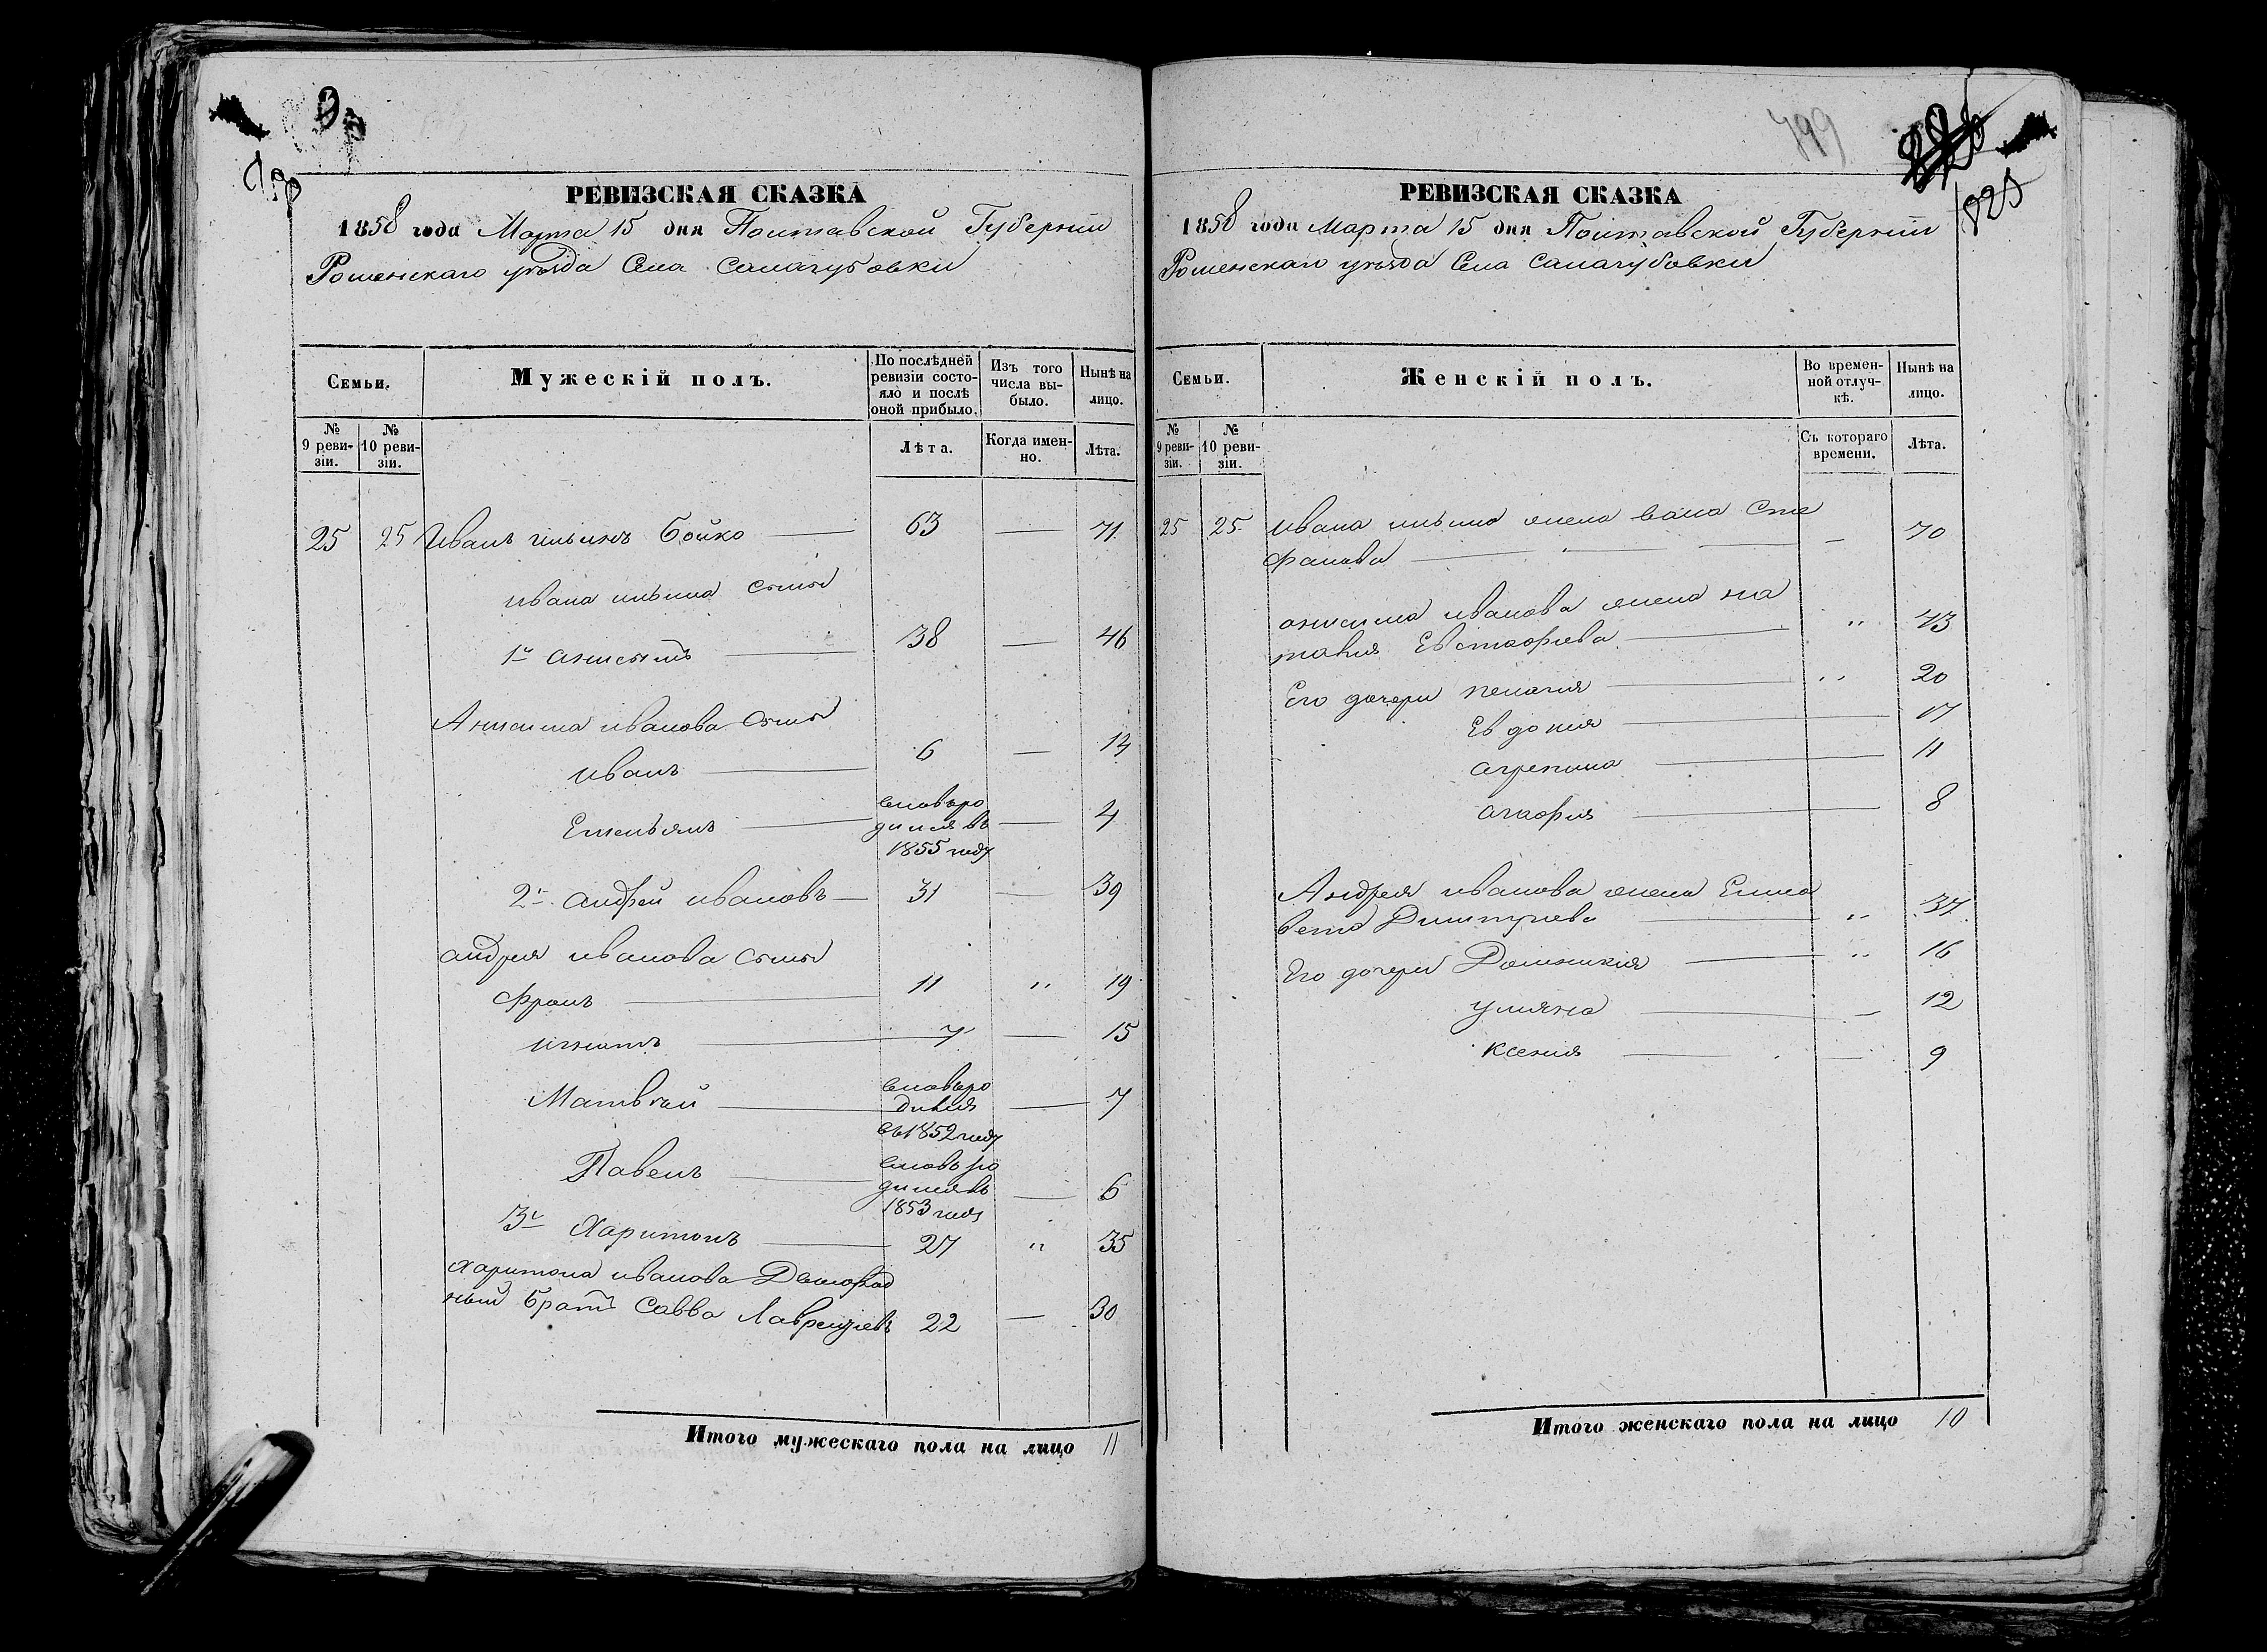 РЕВИЗСКАЯ СКАЗКА
1858 года Марта 15 дня Полтавской Губернiи
Роменскаго уѣзда Села Салагубовки
Семьи.
Мужескiй полъ.
По послѣдней ревизiи состо-
яло и послѣ оной прибыло.
Изъ того числа вы-
было.
Нынѣ на лицо.
№ 9 реви-
зiи.
№ 10 реви-
зiи.
Лѣта.
Когда имен-
но.
Лѣта.
25 25 Иванъ ильинъ Бойко 63 — 71
ивана ильина сыны
1й анисимъ 38 — 46
Анисима иванова сыны
иванъ 6 — 14
Емельянъ
вновьро
дился въ — 4
1855 году
2й андрей ивановъ 31 — 39
андрея иванова сыны
Фролъ 11 " 19
игнатъ 7 — 15
Матвѣй
вновьро
дился — 7
въ 1852 году
Павелъ
вновьро
дился въ — 6
1853 году
3й Харитонъ 27 " 35
харитона иванова Двоюрод
ный братъ Савва Лаврентiевъ 22 — 30
Итого мужескаго пола на лицо 11
799
1825
РЕВИЗСКАЯ СКАЗКА
1858 года марта 15 дня Полтавской Губернiи
Роменскаго уѣзда Села Салагубовки
Семьи.
Женскiй полъ.
Во времен-
ной отлуч-
кѣ.
Нынѣ на лицо.
№ 9 реви-
зiи.
№ 10 реви-
зiи.
Съ котораго времени.
Лѣта.
25 25 Ивана ильина жена Ва Сте
фанова — 70
анисима иванова жена на
талия Евстафиева " 43
Его дочери пелагия " 20
Евдокия 17
агрепина 11
агафия 8
Андрея иванова жена Елиса
вета Димитриева " 37
Его дочери Домникия " 16
улияна — 12
Ксения — 9
Итого женскаго пола на лицо 10